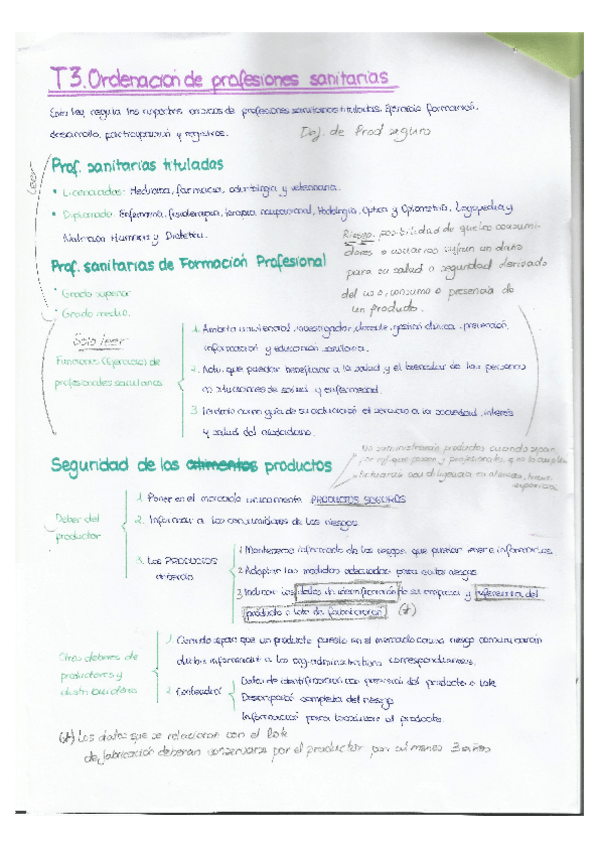 T3. Ordenación de profesiones sanitarias
Esta ley regula los aspectos básicos de profesiones sanitarias tituladas. Ejercicio, formación,
desarrollo, participación y registros.
Def. de Prod seguro
Leer
Prof. sanitarias tituladas
• Licenciados: Medicina, farmacia, odontología y veterinaria.
• Diplomado: Enfermería, fisioterapia, terapia ocupacional, Podología, Optica y Optometría, Logopedia y
Nutrición Humana y Dietética.
Riesgo: posibilidad de que los consumi-
dores o usuarios sufran un daño
para su salud o seguridad derivado
del uso, consumo o presencia de
un producto.
Prof. sanitarias de Formación Profesional
• Grado superior
• Grado medio.
Solo leer
Funciones (Ejercicio) de
profesionales sanitarios
1. Ámbito asistencial, investigador, docente, gestión clínica, prevención,
información y educación sanitaria.
2. Activ. que puedan beneficiar a la salud y el bienestar de las personas
en situaciones de salud y enfermedad.
3. Tendrán como guía de su actuación el servicio a la sociedad, interés
y salud del ciudadano.
No suministrarán productos cuando sepan,
Seguridad de los alimentos productos
Deber del
productor
1. Poner en el mercado únicamente PRODUCTOS SEGUROS
2. Informar a los consumidores de los riesgos
3. Los PRODUCTOS
deberán
1. Mantenerse informado de los riesgos que puedan tener e informarlos.
2. Adoptar las medidas adecuadas para evitar riesgos
3. Indicar los datos de identificación de su empresa y referencia del
producto o lote de fabricación (*)
Otros deberes de
productores y
distribuidores
1. Cuando sepan que un producto puesto en el mercado causa riesgo comunicarán
dicha información a los org. administrativos correspondientes.
2. Contenidos
Datos de identificación con precisión del producto o lote
Descripción completa del riesgo
Información para localizar el producto.
(*) Los datos que se relacionan con el lote
de fabricación deberán conservarse por el productor por al menos 3 años